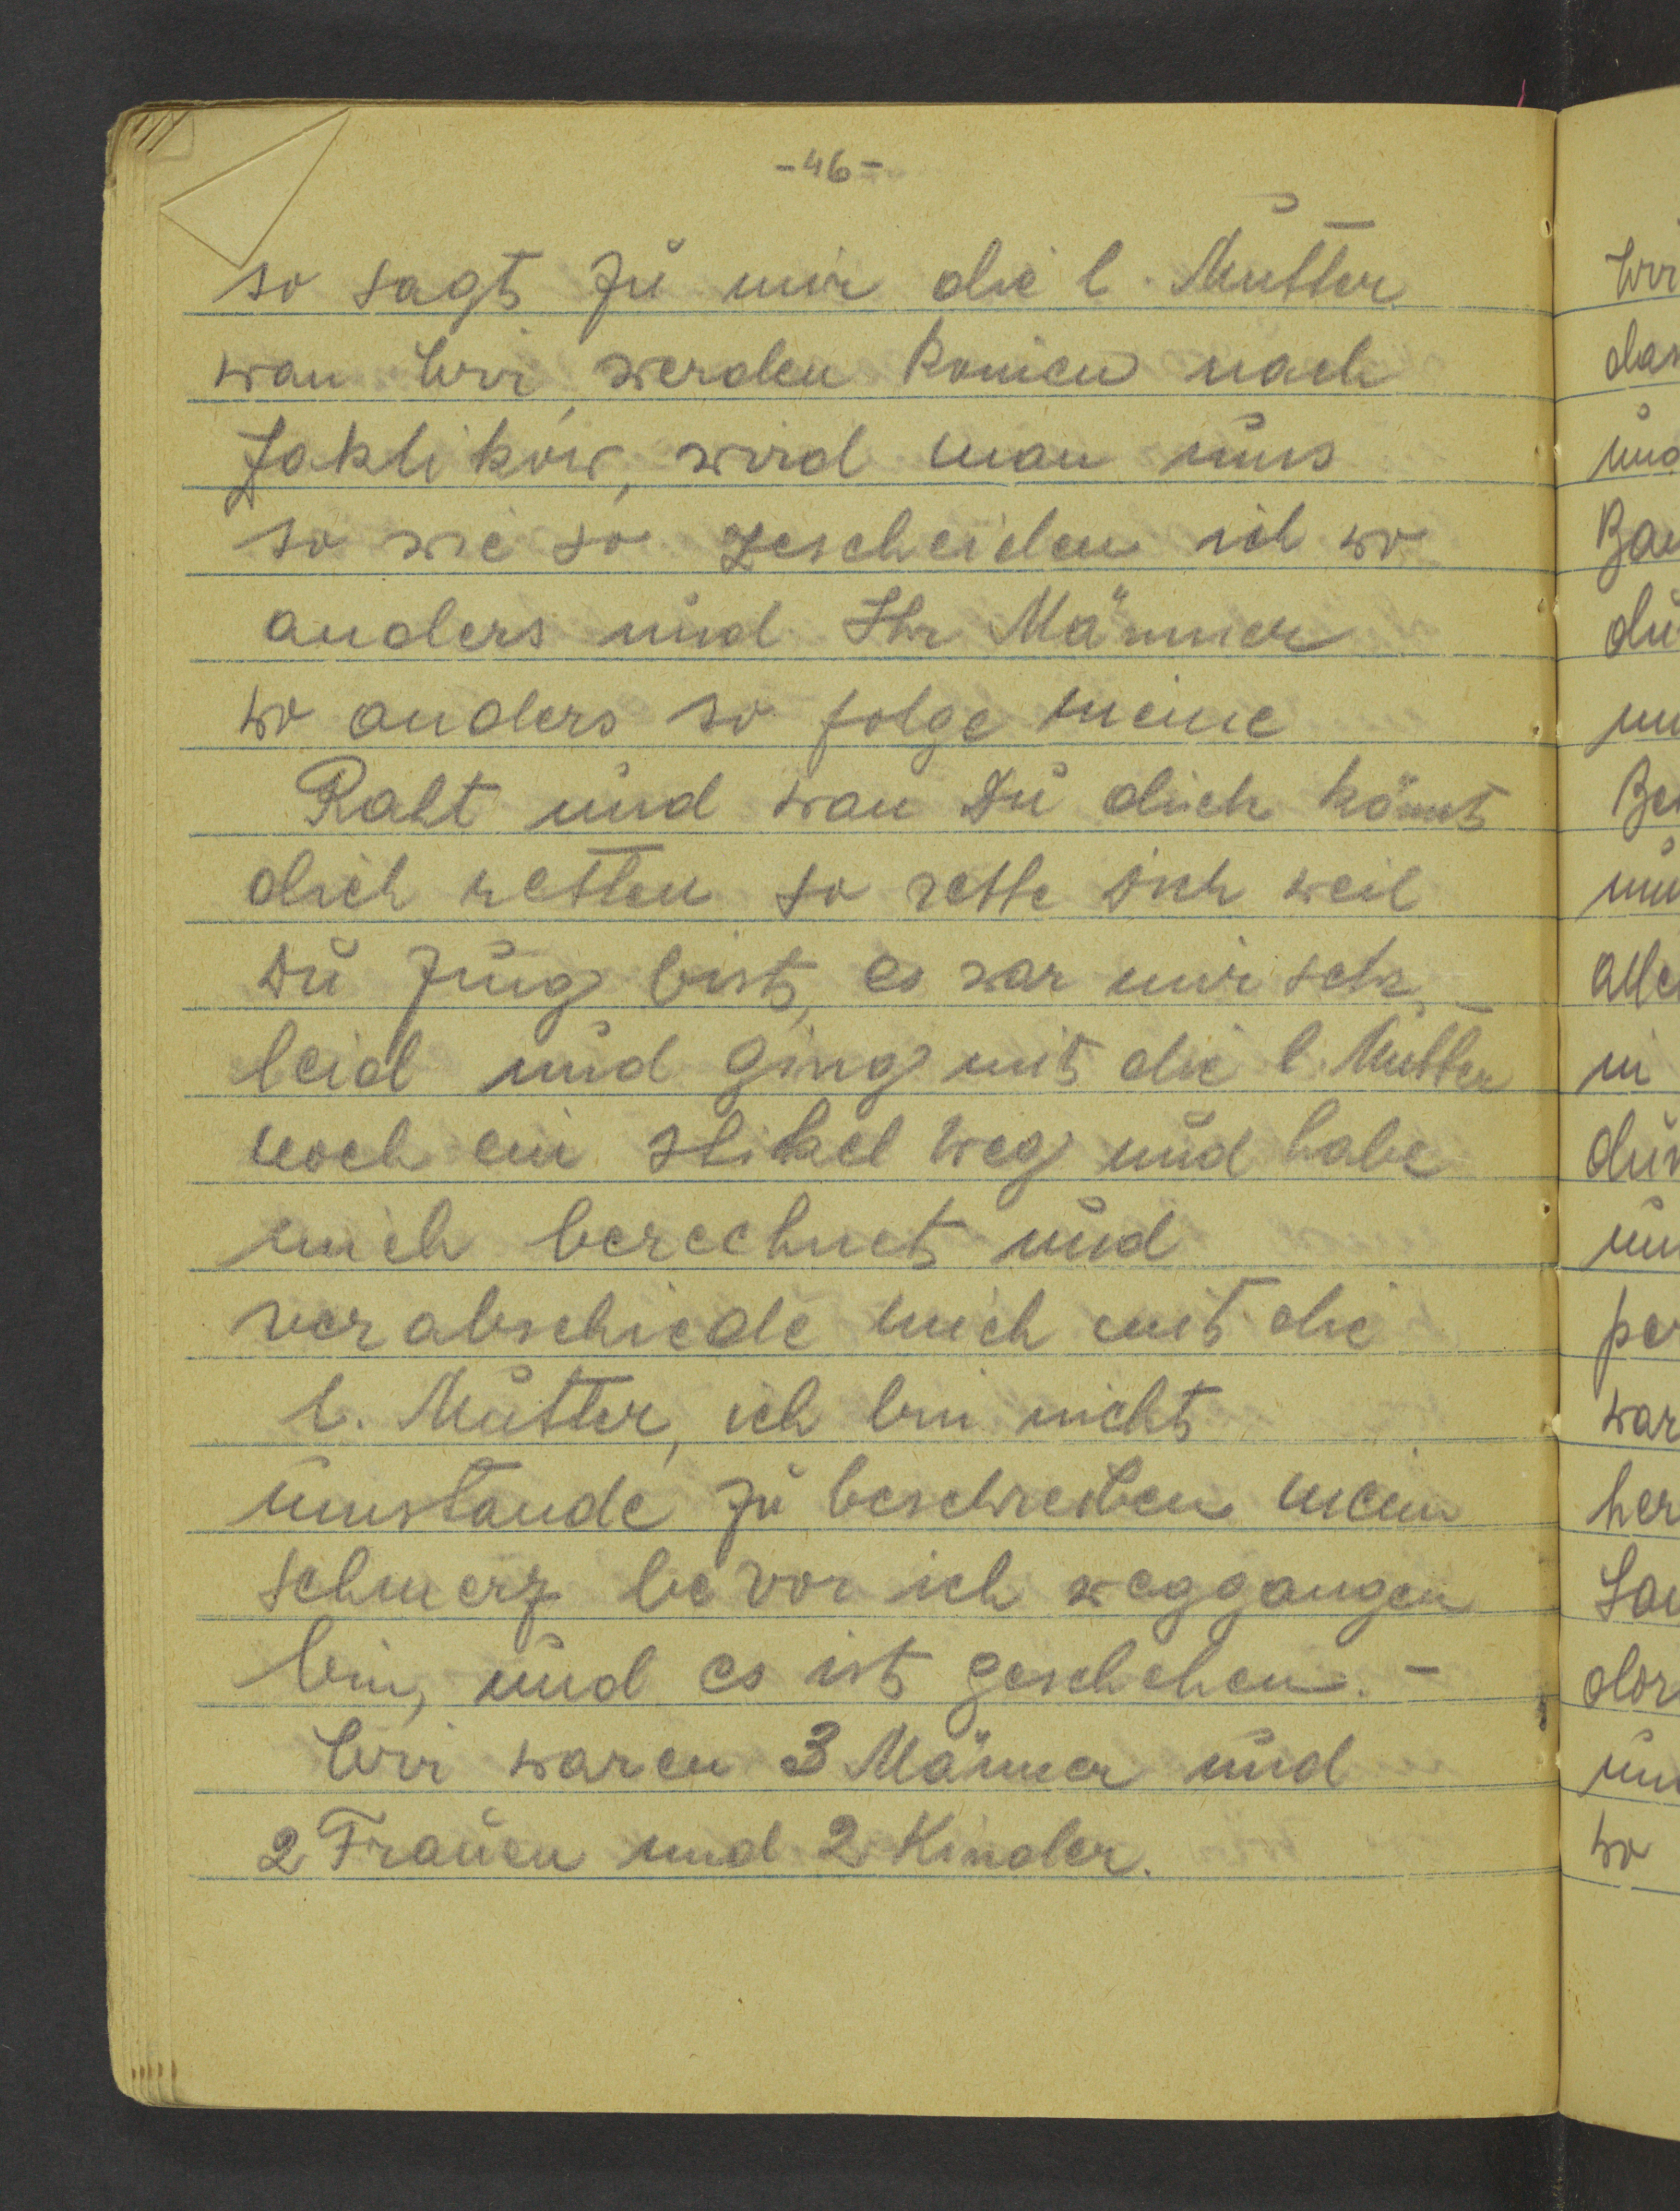 -46-
so sagt zu mir die l. Mutter
wan Wir werden komen nach
Zaklikow, wird man uns
so wie so zescheiden ich wo
anders und Ihr Männer
wo anders so folge meine
Raht und wan Du dich könt
dich retten so rette Dich weil
Du Jung bist, es war mir sehr
leid und ging mit die l. Mutter
noch ein stikel weg und habe
mich berechnet und
verabschiede mich mit die
l. Mutter, ich bin nicht
umstande zu beschreiben mein
schmerz bevor ich weggangen
bin, und es ist geschehen. -
Wir waren 3 Männer und
2 Frauen und 2 Kinder.